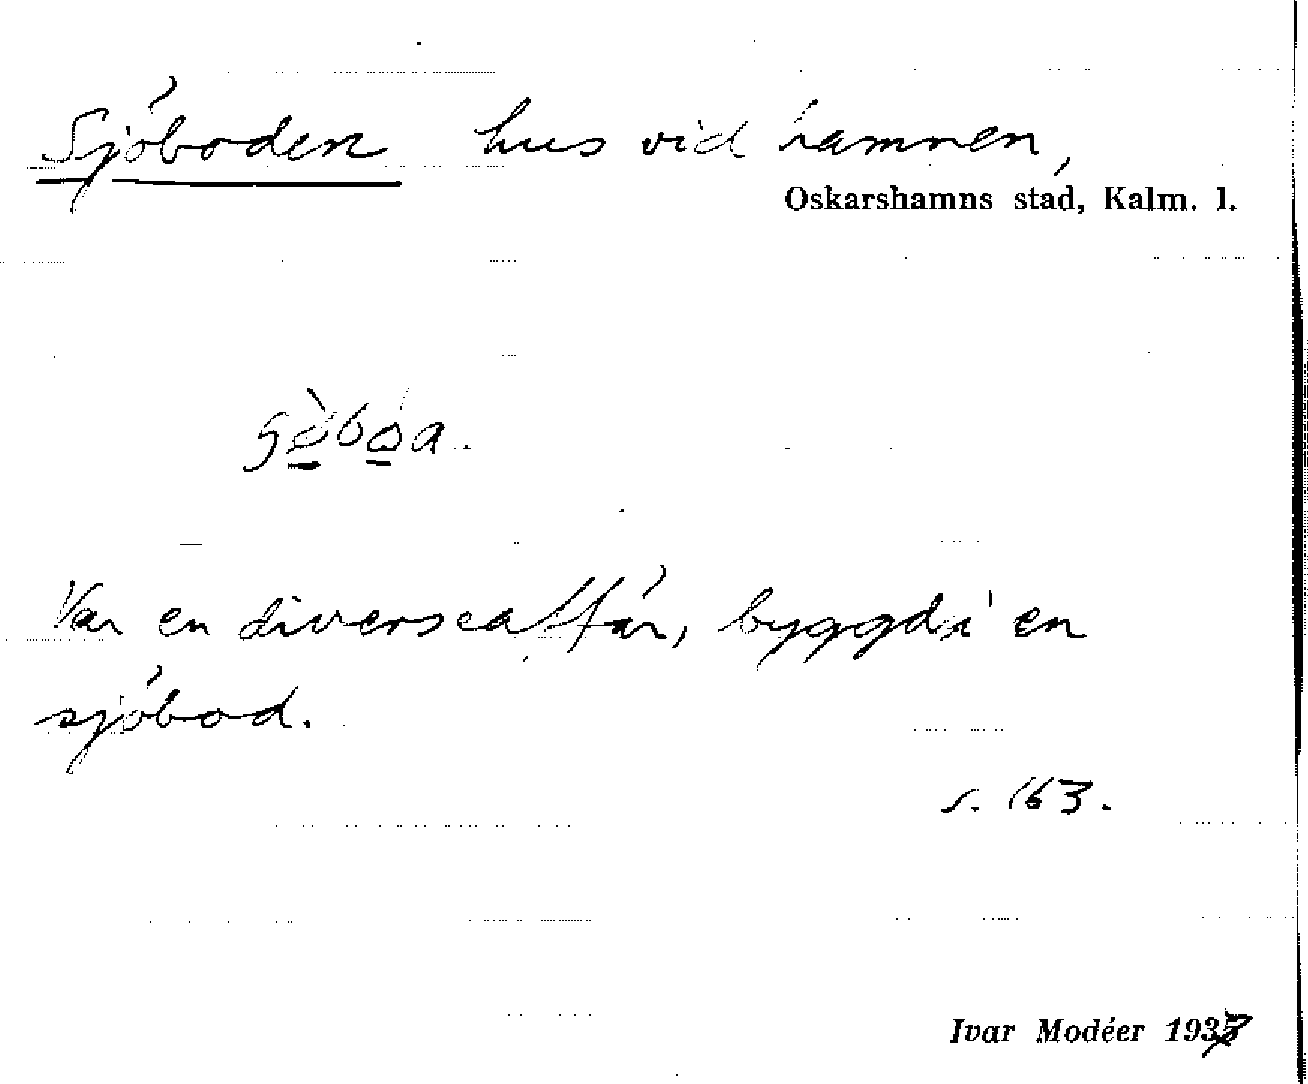 Sjöboden hus vid hamnen,
Oskarshamns stad, Kalm. l.
Var en diverseaffär, byggd i en
sjöbod.
s. 163.
Ivar Modéer 1937